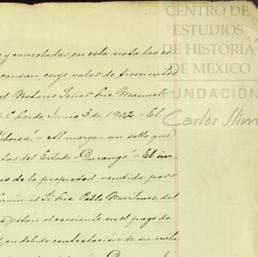 y canceladas en esta nota las es
causan, cuyo valor de trescientos
el Notario Señor Lic. Manuel
C. Lerdo, Junio 3 de 1902 - El
Al margen un sello que
las del Estado - Durango" - El in
de la propiedad vendida por
el Sr. Lic. Pablo Martínez del
están al corriente en el pago de
en debida contestación de su nota
CENTRO DE
ESTUDIOS
DE HISTORIA
DE MEXICO
FUNDACIÓN
Carlos Slim